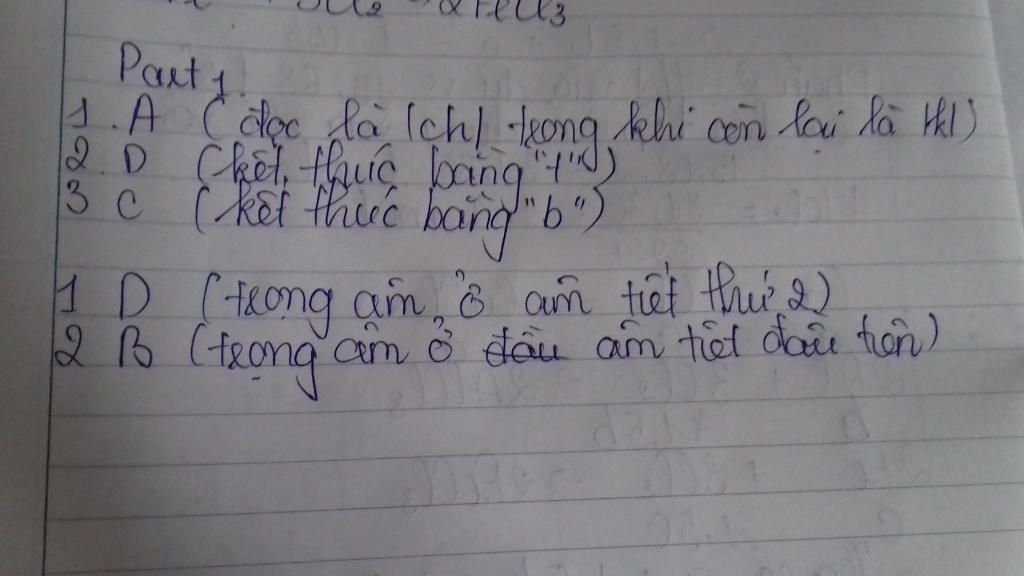 3Cl₂ 2FeCl₃
Part 1
1. A (đọc là /ch/ trong khi còn lại là /k/)
2. D (kết thúc bằng "t")
3 C (kết thúc bằng "b")
1 D (trọng âm ở âm tiết thứ 2)
2 B (trọng âm ở đầu âm tiết đầu tiên)